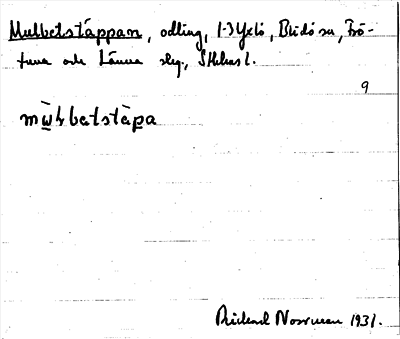 Mulbetstäppan, odling, 1-3 Yxlö, Blidö sn, Frö-
tuna och Länna slg., Sthlms l.
9
mẁlbetstäpa
Rickard Norrman 1931.